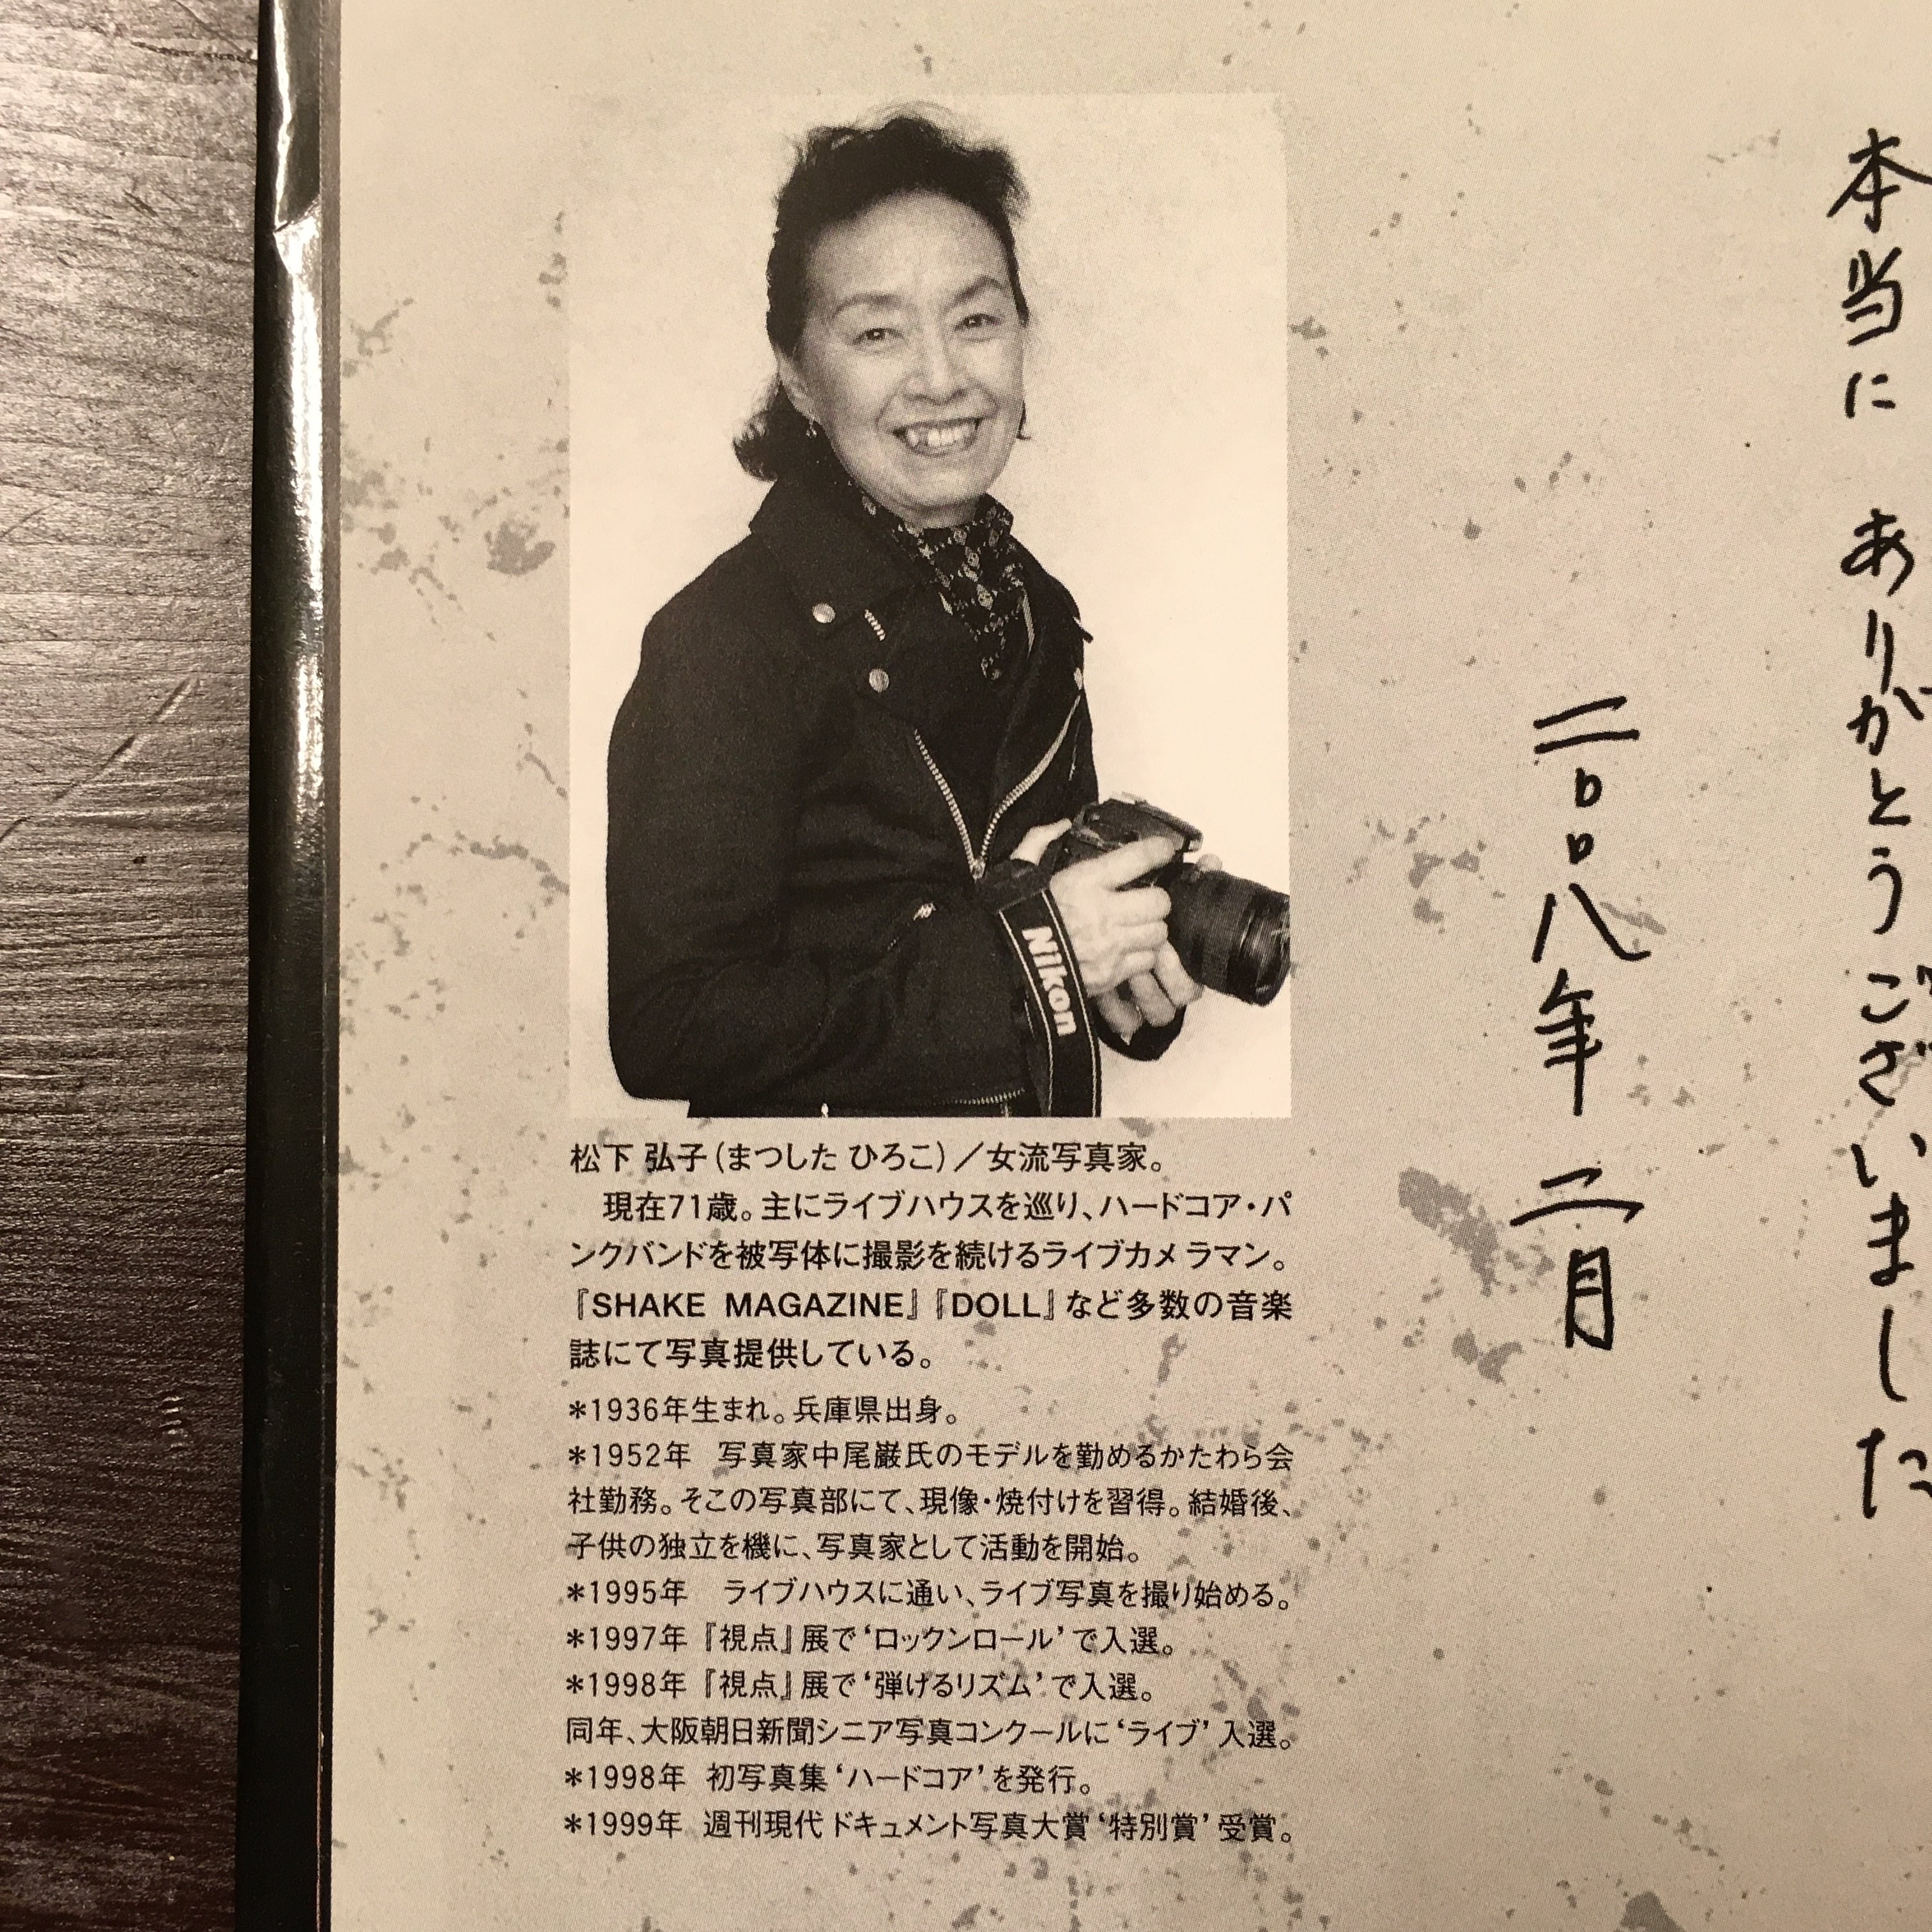 本当に ありがとうございました
二〇〇八年 二月
Nikon
松下 弘子(まつした ひろこ)／女流写真家。
現在71歳。主にライブハウスを巡り、ハードコア・パ
ンクバンドを被写体に撮影を続けるライブカメラマン。
『SHAKE MAGAZINE』『DOLL』など多数の音楽
誌にて写真提供している。
＊1936年生まれ。兵庫県出身。
＊1952年 写真家中尾巌氏のモデルを勤めるかたわら会
社勤務。そこの写真部にて、現像・焼付けを習得。結婚後、
子供の独立を機に、写真家として活動を開始。
＊1995年 ライブハウスに通い、ライブ写真を撮り始める。
＊1997年『視点』展で‘ロックンロール’で入選。
＊1998年『視点』展で‘弾けるリズム’で入選。
同年、大阪朝日新聞シニア写真コンクールに‘ライブ’入選。
＊1998年 初写真集‘ハードコア’を発行。
＊1999年 週刊現代 ドキュメント写真大賞‘特別賞’受賞。